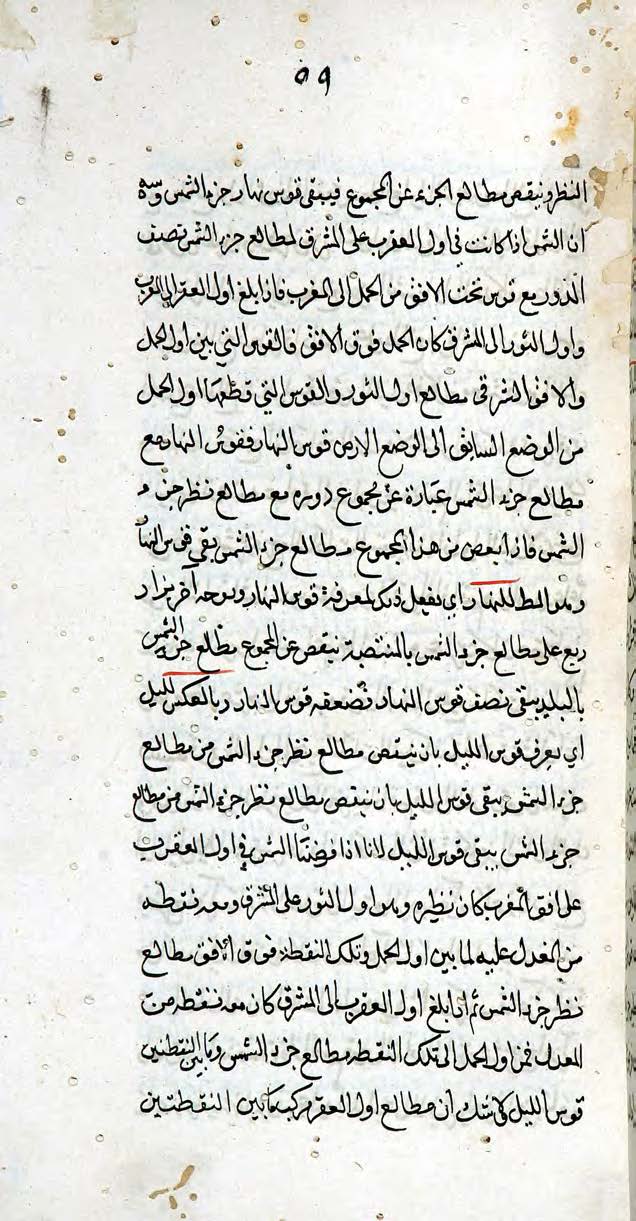 ٥٩
النظير وينقص مطالع الجزء عن المجموع فيبقى قوس نهار جزء الشمس وسره
ان الشمس اذا كانت في اول العقرب على المشرق لمطالع جزء الشمس نصف
الدور مع قوس تحت الافق من الحمل الى المغرب فاذا بلغ اول العقرب الى المغرب
واول الثور الى المشرق كان الحمل فوق الافق فالقوس التي بين اول الحمل
والافق الشرقي مطالع اول الثور والقوس التي قطعها اول الحمل
من الوضع السابق الى الوضع الارض قوس النهار فقوس النهار مع
مطالع جزء الشمس عبارة عن مجموع دوره مع مطالع نظر جزء
الشمس فاذا بعض من هذا المجموع مطالع جزء الشمس بقي قوس النها
وهو المط للنهار اي يفعل ذلك لمعرفة قوس النهار وبوجه آخر يزاد
ربع على مطالع جزء الشمس بالمنتصبة ينقص عن المجموع مطالع جزء الشمس
بالبلد يبقى نصف قوس النهار نضعفه قوس النهار وبالعكس لليل
اي يعرف قوس الليل بان ينقص مطالع نظر جزء الشمس من مطالع
جزء الشمس يبقى قوس الليل بان ينقص مطالع نظر جزء الشمس من مطالع
جزء الشمس يبقى قوس الليل لانا اذا فرضنا الشمس في اول العقرب
على افق المغرب كان نظيره وهو اول الثور على المشرق ومعه نقطه
من المعدل عليه لما بين اول الحمل وتلك النقطة فوق الافق مطالع
نظر جزء الشمس ثم اذا بلغ اول العقرب الى المشرق كان معه نقطه من
المعدل فمن اول الحمل الى تلك النقطه مطالع جزء الشمس وما بين النقطتين
قوس الليل لا شك ان مطالع اول العقرب مركب مما بين النقطتين